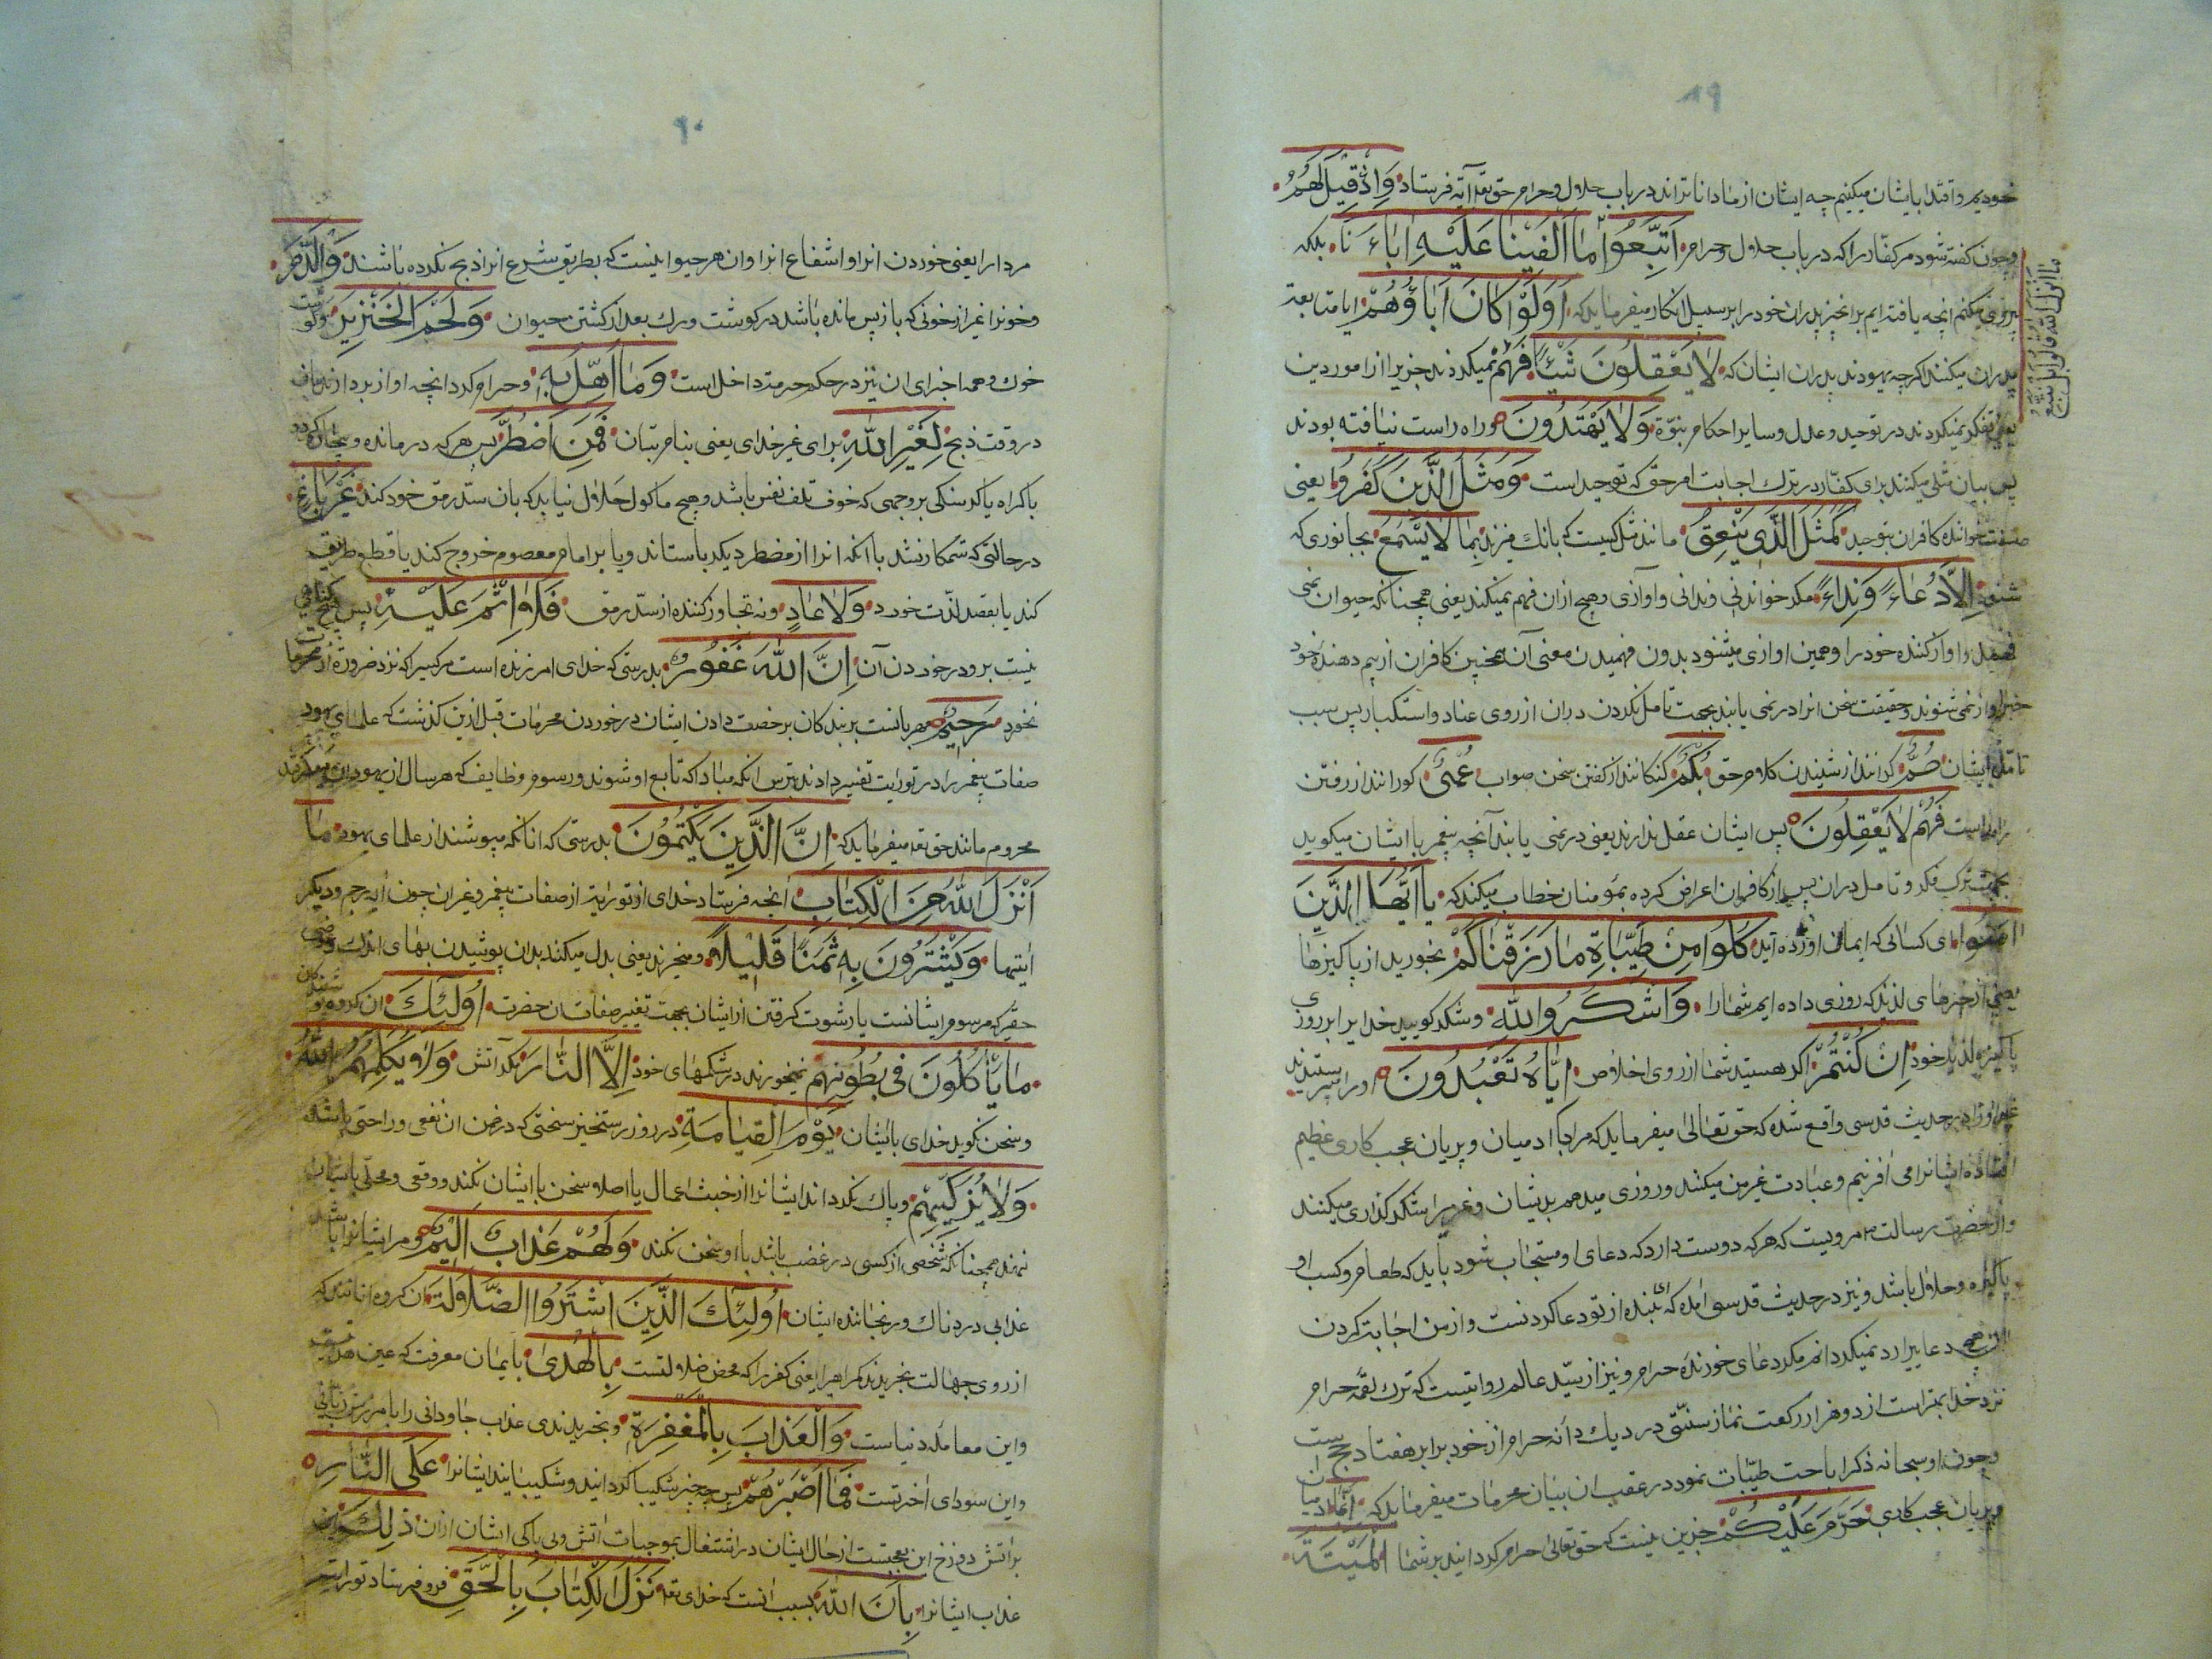 ۸۹
خودیم و اقتدا بایشان میکنیم چه ایشان از ما داناتراند در باب حلال و حرام حق تعه آیه فرستاد وَاِذٰا قیٖلَ لَهُمْ
و چون گفته شود مر کفار را که در باب حلال و حرام اتَّبِعُوا مٰا اَلْفَیْنٰا عَلَیْهِ اٰبٰاءَنٰا بلکه
مٰا اَنْزَلَ اللّٰهُ قٰالُوا بَلْ نَتَّبِعُ
پیروی میکنیم انچه یافته ایم بر انچیز پدران خود را بر سبیل انکار میفرماید که اَوَلَوْ کٰانَ اٰبٰاؤُهُمْ ایا متابعة
پدران میکنند اگرچه بودند پدران ایشان که لٰا یَعْقِلُونَ شَیْئًا فهم نمیکردند چیزیرا از امور دین
یعنی تفکر نمیکردند در توحید و عدل و سایر احکام نبوّة وَلٰا یَهْتَدُونَ و راه راست نیافته بودند
پس بیان مثلی میکند برای کفّار در ترک اجابت امر حق که توحید است وَمَثَلُ الَّذِینَ کَفَرُوا یعنی
صفت خواننده کافران بتوحید کَمَثَلِ الَّذِی یَنْعِقُ مانند مثل کسیست که بانک میزند بِمٰا لٰا یَسْمَعُ بجانوری که
نمی شنود اِلّٰا دُعٰاءً وَنِدٰاءً مکر خواندنی و ندائی و اوازی و هیچ از ان فهم نمیکند یعنی همچنانکه حیوان نمی
فهمد از اواز کننده خود را و همین اوازی میشنود بدون فهمیدن معنی آن همچنین کافران از بیم دهنده خود
جز اواز نمی شنوند و حقیقت سخن انرا در نمی یابند بجهت تامل نکردن در ان از روی عناد و استکبار پس سبب
تامل ایشان صُمٌّ کرانند از شنیدن کلام حق بُکْمٌ کنکانند از کفتن سخن صواب عُمْیٌ کورانند از رفتن
راه راست فَهُمْ لٰا یَعْقِلُونَ پس ایشان عقل ندارند یعنی در نمی یابند آنچه پیغمبر با ایشان میکوید
بجهت ترک فکر و تامل در ان پس از کافران اعراض کرده بمؤمنان خطاب میکند که یٰا اَیُّهَا الَّذِینَ
اٰمَنُوا ای کسانی که ایمان اورده اید کُلُوا مِنْ طَیِّبٰاتِ مٰا رَزَقْنٰاکُمْ بخورید از پاکیزها
یعنی از چیزهای لذیذ که روزی داده ایم شما را وَاشْکُرُوا لِلّٰهِ و شکر کویید خدایرا بر روزی
پاکیزه لذیذ خود اِنْ کُنْتُمْ اکر هستید شما از روی اخلاص اِیّٰاهُ تَعْبُدُونَ او را میپرستید نه
غیر او را در حدیث قدسی واقع شده که حق تعالی میفرماید که مرا با ادمیان و پریان عجب کاری عظیم
افتاده ایشانرا می افرینم و عبادت غیر من میکنند و روزی میدهم بدیشان و غیر مرا شکر گذاری میکنند
و از حضرت رسالت مرویست که هر که دوست دارد که دعای او مستجاب شود باید که طعام و کسب او
پاکیزه و حلال باشد و نیز در حدیث قدسی امده که ای بنده از تو دعا کردنست و از من اجابت کردن
هیچ دعایی را رد نمیکردانم مکر دعای خورنده حرام و نیز از سیّد عالم روایتست که ترک لقمه حرام
نزد خدا بهتر است از دو هزار رکعت نماز سنّتی و رد یک دانه حرام از خود برابر هفتاد حج است
و چون او سبحانه ذکر اباحت طیّبات نمود در عقب ان بیان محرمات میفرماید که اِنَّمٰا
حَرَّمَ عَلَیْکُمْ جز این نیست که حق تعالی حرام کردانید بر شما الْمَیْتَةَ
۹۰
مردار را یعنی خوردن انرا و انتفاع انرا و ان هر حیوانیست که بطریق شرع انرا ذبح نکرده باشند وَالدَّمَ
و خون را غیر از خونی که باز پس مانده باشد در کوشت و رک بعد از کشتن حیوان وَلَحْمَ الْخِنْزِیرِ و کوشت
خوک و همه اجزای ان نیز در حکم حرمة داخل است وَمٰا اُهِلَّ بِهِ و حرام کرد انچه اواز بردارند بان
در وقت ذبح لِغَیْرِ اللّٰهِ برای غیر خدای یعنی بنام بتان فَمَنِ اضْطُرَّ پس هر که درمانده و بیچاره کردد
باکراه یا کرسنکی بروجهی که خوف تلف نفس باشد و هیچ ماکول حلال نیابد که بان سدّ رمق خود کند غَیْرَ بٰاغٍ
در حالتی که ستمکار نشد با انکه انرا از مضطر دیکر باستاند و یا بر امام معصوم خروج کند یا قطع طریق
کند یا بقصد لذّت خورد وَلٰا عٰادٍ و نه تجاوز کننده از سدّ رمق فَلٰا اِثْمَ عَلَیْهِ پس هیچ کناهی
نیست برو در خوردن آن اِنَّ اللّٰهَ غَفُورٌ بدرستی که خدای امرزنده است مر کسیرا که نزد ضرورة از محرمات
بخورد رَحِیمٌ مهربانست بر بندکان برخصت دادن ایشان در خوردن محرمات قبل ازین کذشت که علمای یهود
صفات پیغمبر را در توریت تغییر دادند بترس انکه مبادا که تابع او شوند و رسوم و وظایف که هر سال از یهودان میکرفتند
محروم مانند حق تعه میفرماید که اِنَّ الَّذِینَ یَکْتُمُونَ بدرستی که انانکه میپوشند از علمای یهود مٰا
اَنْزَلَ اللّٰهُ مِنَ الْکِتٰابِ انچه فرستاد خدای از توراة از صفات پیغمبر و غیر ان چون آیه رجم و دیکر
ایتها وَیَشْتَرُونَ بِهِ ثَمَنًا قَلِیلًا و میخرند یعنی بدل میکنند بدان پوشیدن بهای اندک و عوضی
حقیر که مرسوم ایشانست یا رشوت کرفتن از ایشان بجهت تغییر صفات ان حضرت اُولٰئِکَ ان کروه
مٰا یَأْکُلُونَ فِی بُطُونِهِمْ نمیخورند در شکمهای خود اِلَّا النّٰارَ مکر آتش وَلٰا یُکَلِّمُهُمُ اللّٰهُ
و سخن نکوید خدای باایشان یَوْمَ الْقِیٰامَةِ در روز رستخیز سخنی که در ضمن ان نفعی و راحتی باشد
وَلٰا یُزَکِّیهِمْ و پاک نکرداند ایشانرا از خبث اعمال یا اصلا سخن باایشان نکند و وقعی و محلی باایشان
ننهد همچنانکه شخصی از کسی در غضب باشد با او سخن نکند وَلَهُمْ عَذٰابٌ اَلِیمٌ و مر ایشانرا باشد
عذابی دردناک و رنجاننده ایشان اُولٰئِکَ الَّذِینَ اشْتَرَوُا الضَّلٰالَةَ ان کروه انانند که
از روی جهالت بخریدند کمراهیرا یعنی کفر را که محض ضلالتست بِالْهُدیٰ بایمان معرفت که عین هدایت
و این معامله دنیاست وَالْعَذٰابَ بِالْمَغْفِرَةِ و بخریدندی عذاب جاودانی را بامرزش ربّانی
و این سودای اخرتست فَمٰا اَصْبَرَهُمْ پس چه چیز شکیبا کردانید و شکیبانید ایشانرا عَلَی النّٰارِ
بر اتش دوزخ این تعجبست از حال ایشان در اشتغال بموجبات اتش و بی باکی ایشان از ان ذٰلِکَ
عذاب ایشانرا بِاَنَّ اللّٰهَ بسبب انست که خدای تعه نَزَّلَ الْکِتٰابَ بِالْحَقِّ فرو فرستاد توراة